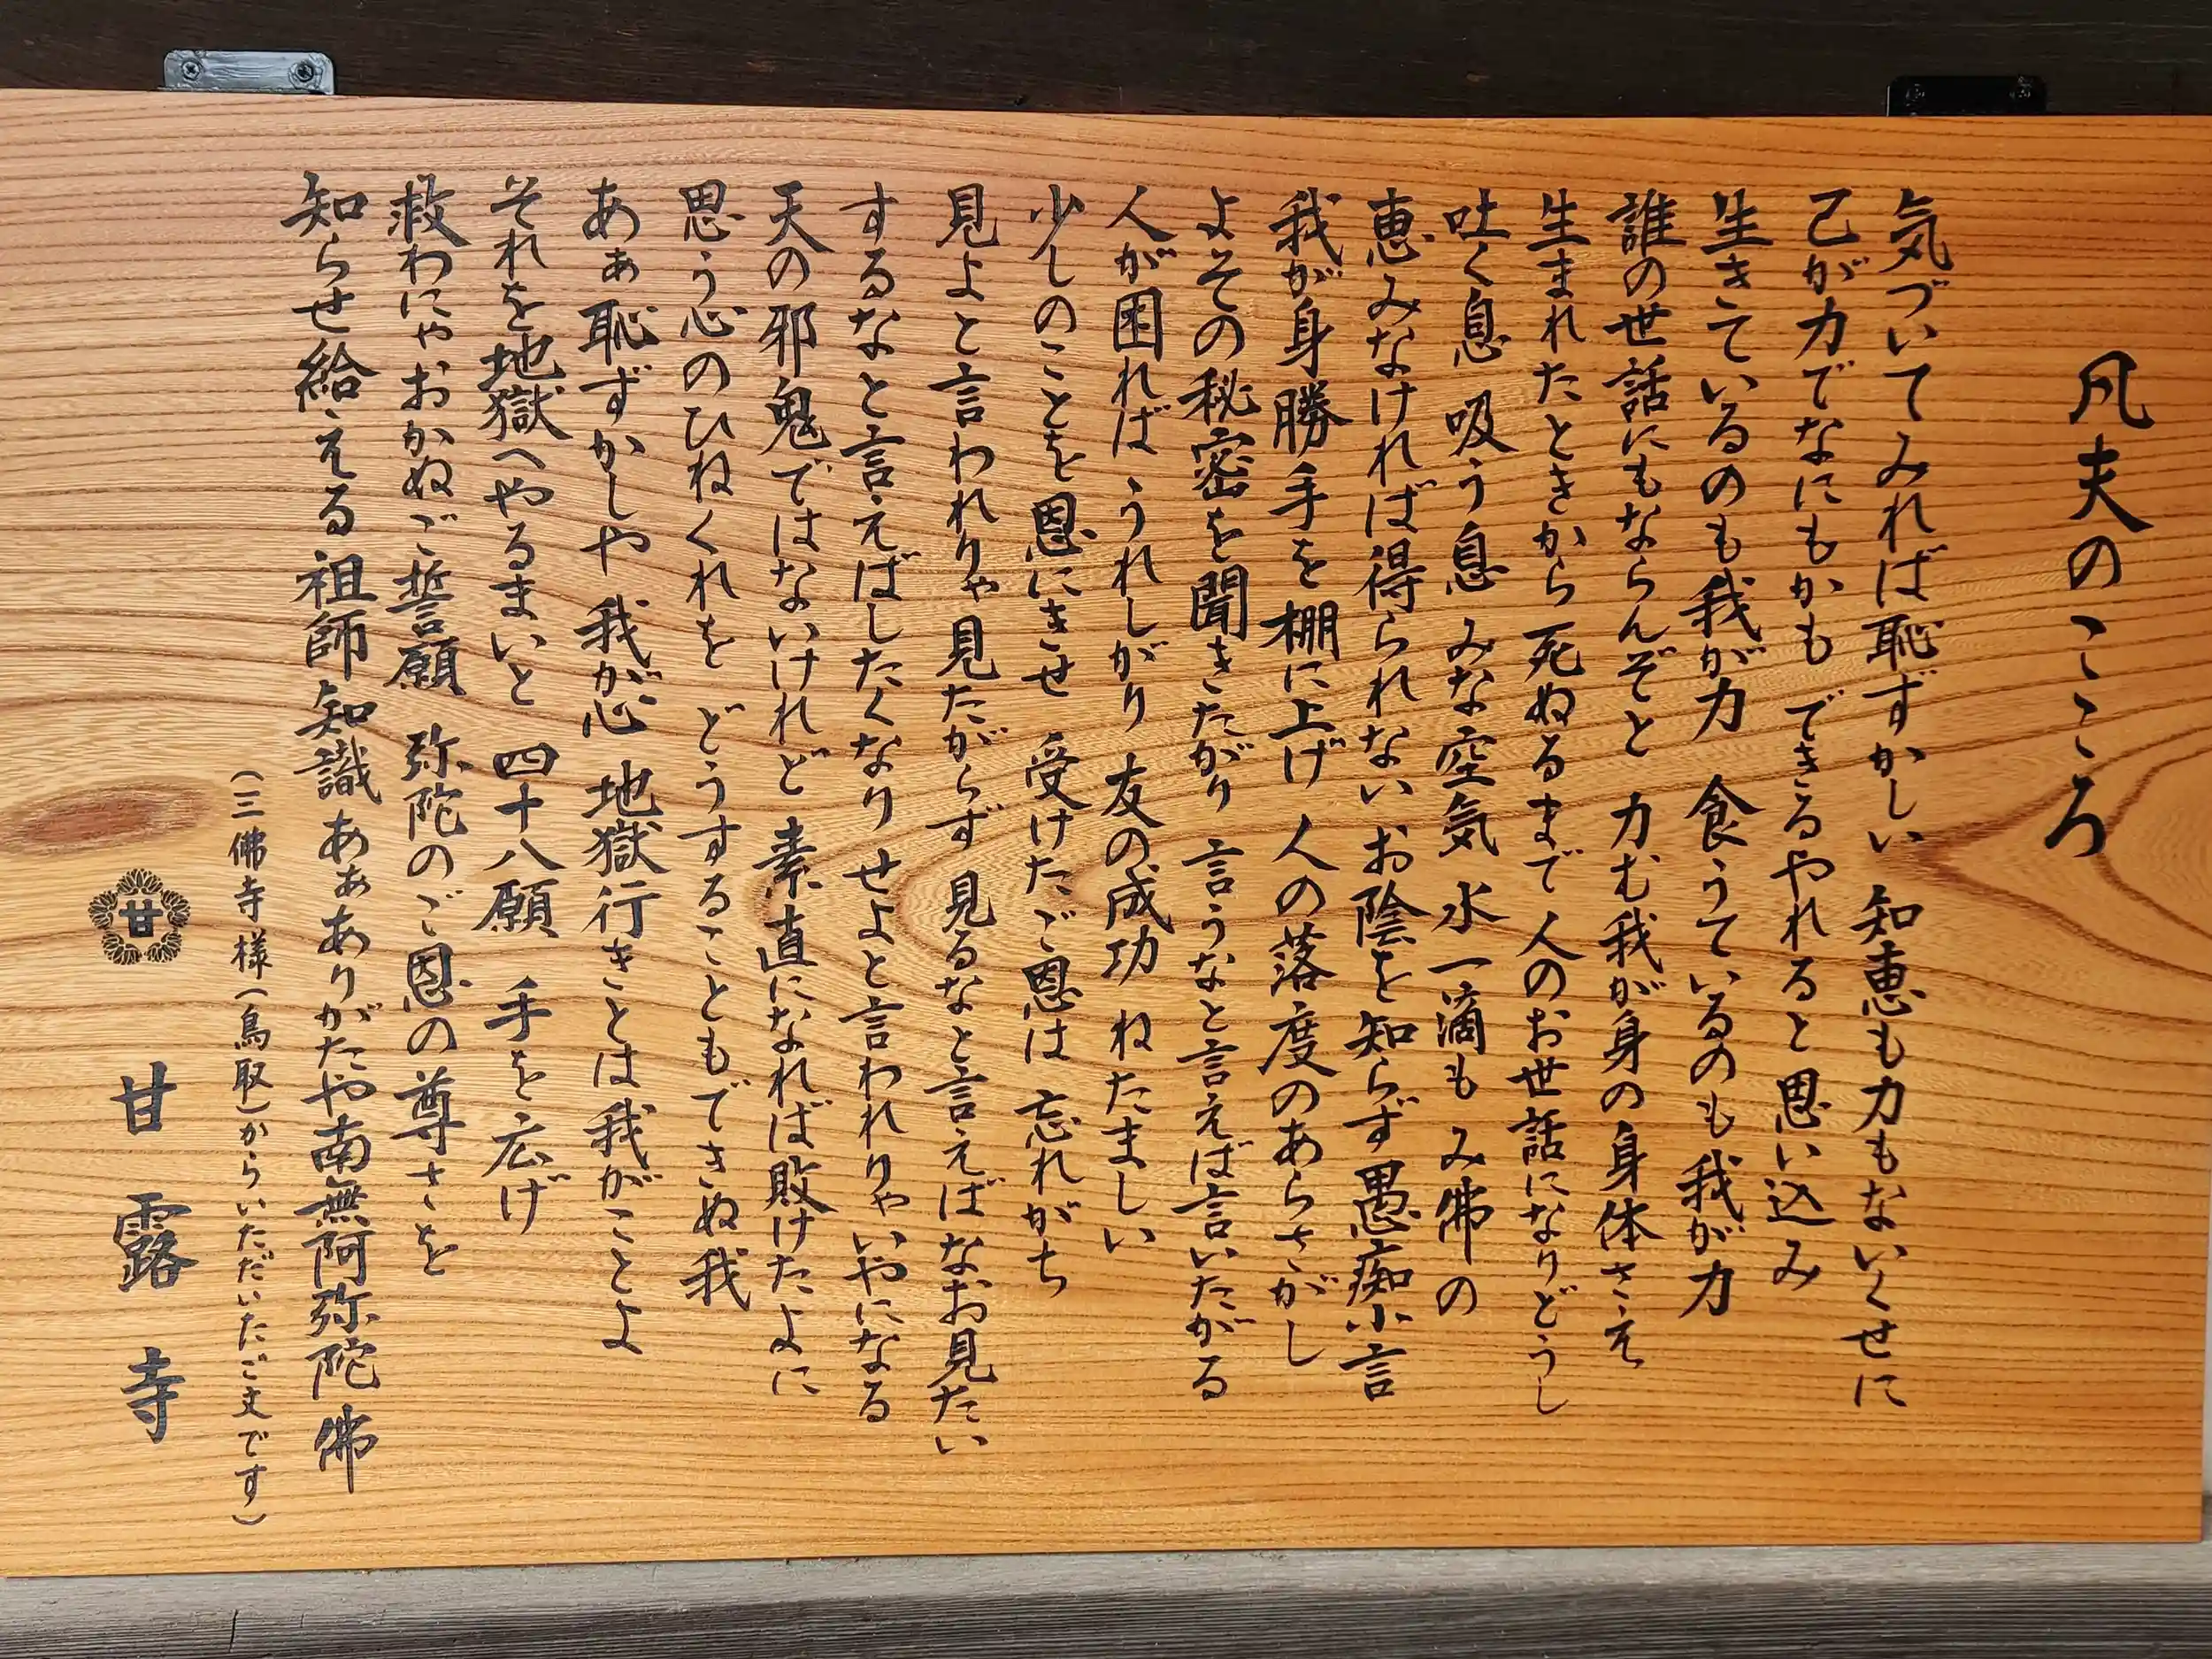 凡夫のこころ
気づいてみれば恥ずかしい 知恵も力もないくせに
己が力でなにもかも できるやれると思い込み
生きているのも我が力 食うているのも我が力
誰の世話にもならんぞと 力む我が身の身体さえ
生まれたときから死ぬるまで 人のお世話になりどうし
吐く息 吸う息 みな空気 水一滴も み佛の
恵みなければ得られない お陰を知らず愚痴小言
我が身勝手を棚に上げ 人の落度のあらさがし
よその秘密を聞きたがり 言うなと言えば言いたがる
人が困れば うれしがり 友の成功 ねたましい
少しのことを恩にきせ 受けたご恩は 忘れがち
見よと言われりゃ見たがらず 見るなと言えばなお見たい
するなと言えばしたくなり せよと言われりゃいやになる
天の邪鬼ではないけれど 素直になれば敗けたよに
思う心のひねくれを どうすることもできぬ我
あぁ恥ずかしや 我が心 地獄行きとは我がことよ
それを地獄へやるまいと 四十八願 手を広げ
救わにゃおかぬご誓願 弥陀のご恩の尊さを
知らせ給える祖師知識 あぁありがたや南無阿弥陀佛
(三佛寺様(鳥取)からいただいたご文です)
甘
甘露寺